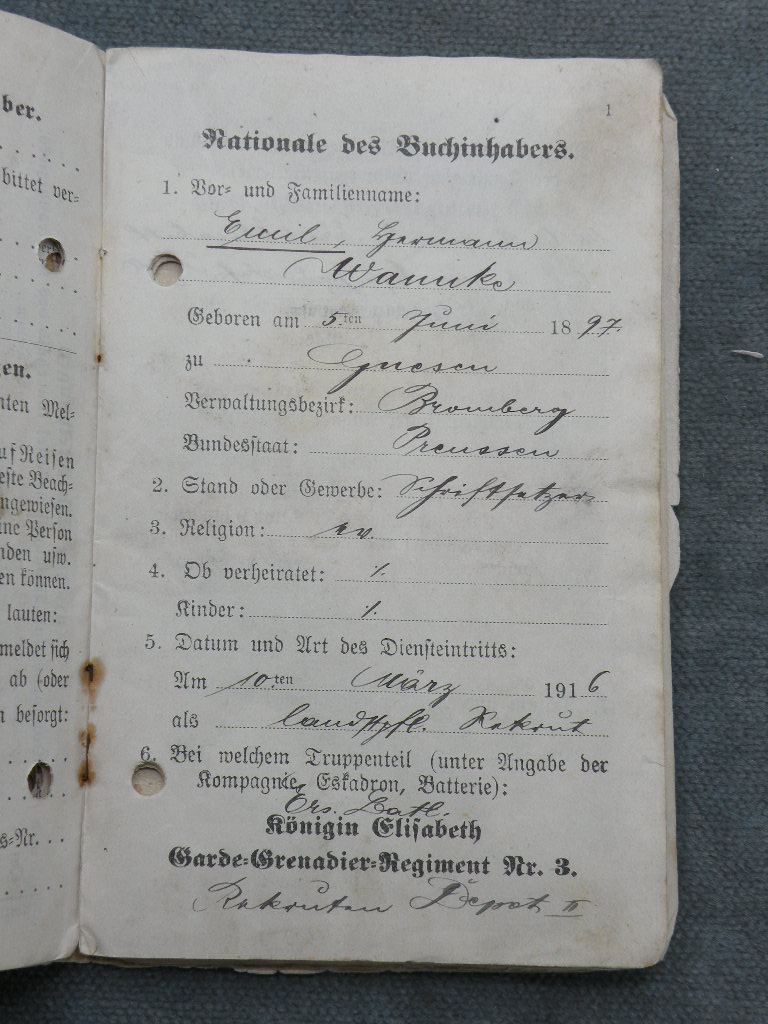 ber.
bittet ver-
en.
nten Mel-
uf Reisen
este Beach-
ngewiesen.
ine Person
nden usw.
en können.
lauten:
meldet sich
ab (oder
n besorgt:
s-Nr.
1
Nationale des Buchinhabers.
1. Vor- und Familienname:
Emil, Hermann
Wannke
Geboren am 5.ten Juni 1897.
zu Gnesen
Verwaltungsbezirk: Bromberg
Bundesstaat: Preussen
2. Stand oder Gewerbe: Schriftsetzer
3. Religion: ev.
4. Ob verheiratet: ⁒
Kinder: ⁒
5. Datum und Art des Diensteintritts:
Am 10.ten März 1916
als landstpfl. Rekrut
6. Bei welchem Truppenteil (unter Angabe der
Kompagnie, Eskadron, Batterie):
Ers. Batl.
Königin Elisabeth
Garde-Grenadier-Regiment Nr. 3.
Rekruten Depot II